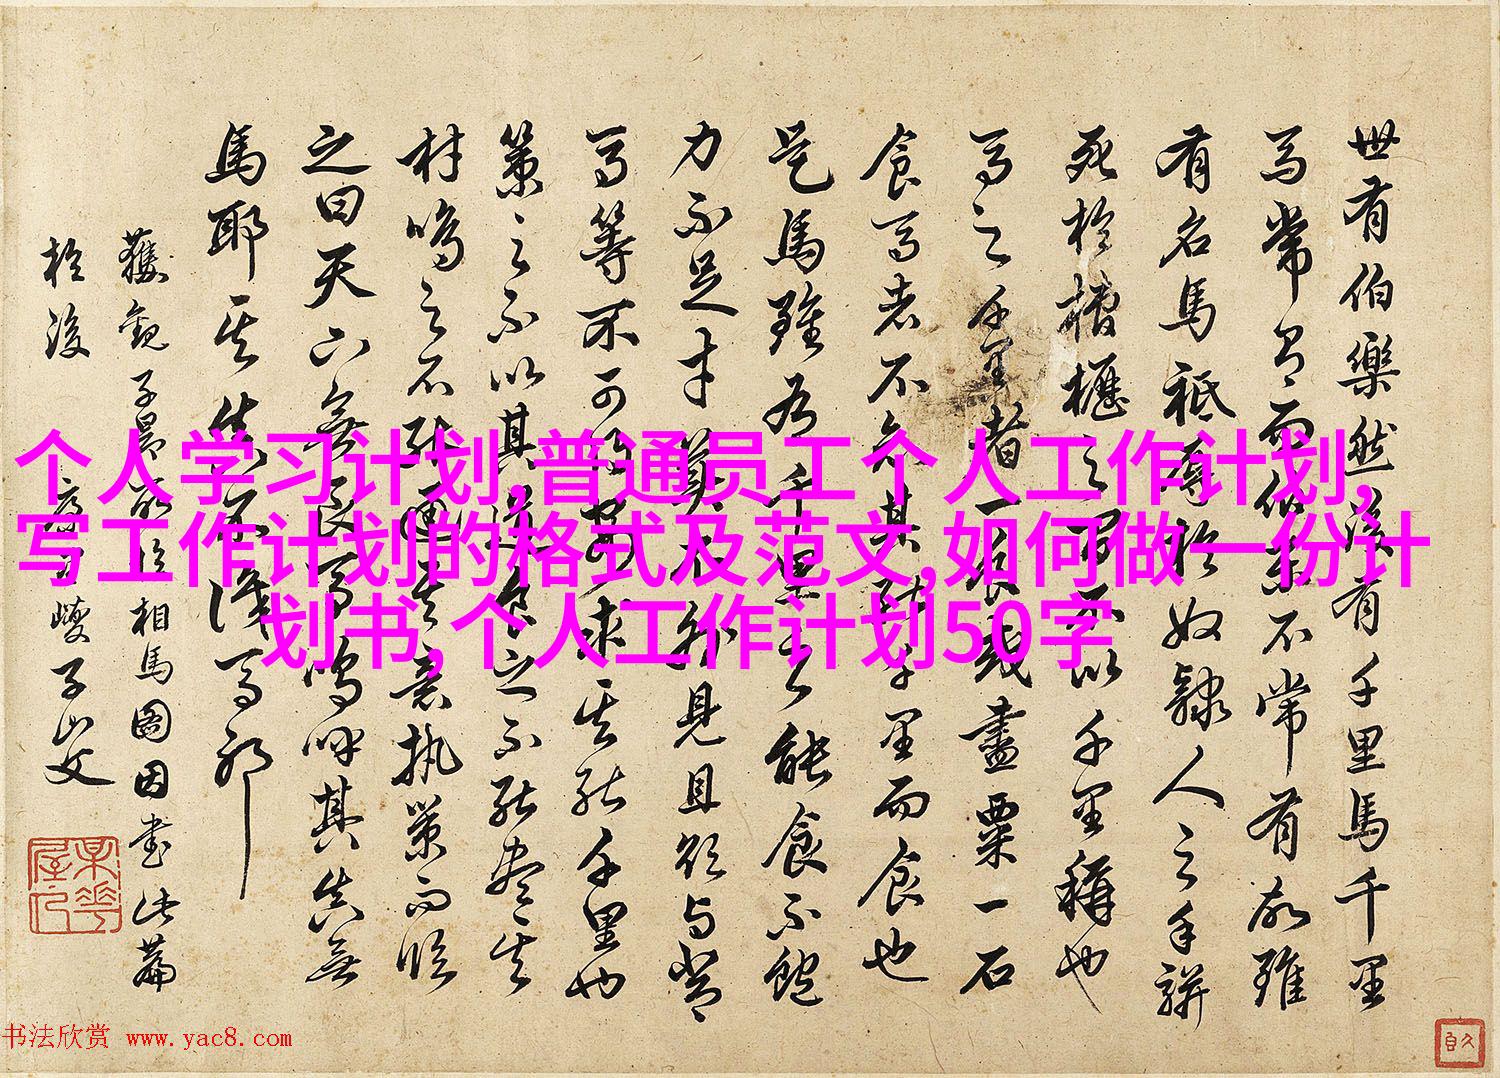 世有伯樂然後有千里馬千里
馬常有而伯樂不常有故雖
有名馬祗辱於奴隸人之手騈
死於槽櫪之間不以千里稱也
馬之千里者一食或盡粟一石
食馬者不知其能千里而食也
是馬雖有千里之能食不飽
力不足才美不外見且欲與常
馬等不可得安求其能千里也
策之不以其道食之不能盡其
材鳴之不能通其意執策而臨
之曰天下無良馬嗚呼其真無
馬耶其真不識馬耶
獲觀子昂所臨相馬圖因書此篇
於後 康里巎子山父
个人学习计划,普通员工个人工作计划,
写工作计划的格式及范文,如何做一份计
划书,个人工作计划50字
书法欣赏 www.yac8.com